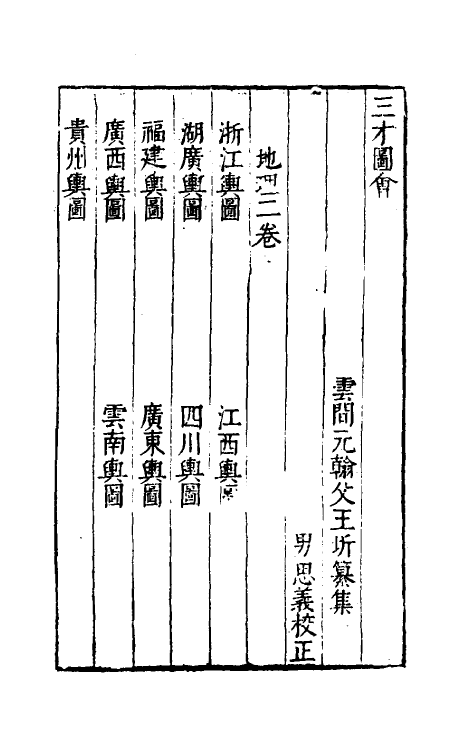 三才圖會
雲間元翰父王圻纂集
男思義校正
地理二卷
浙江輿圖
江西輿圖
湖廣輿圖
四川輿圖
福建輿圖
廣東輿圖
廣西輿圖
雲南輿圖
貴州輿圖